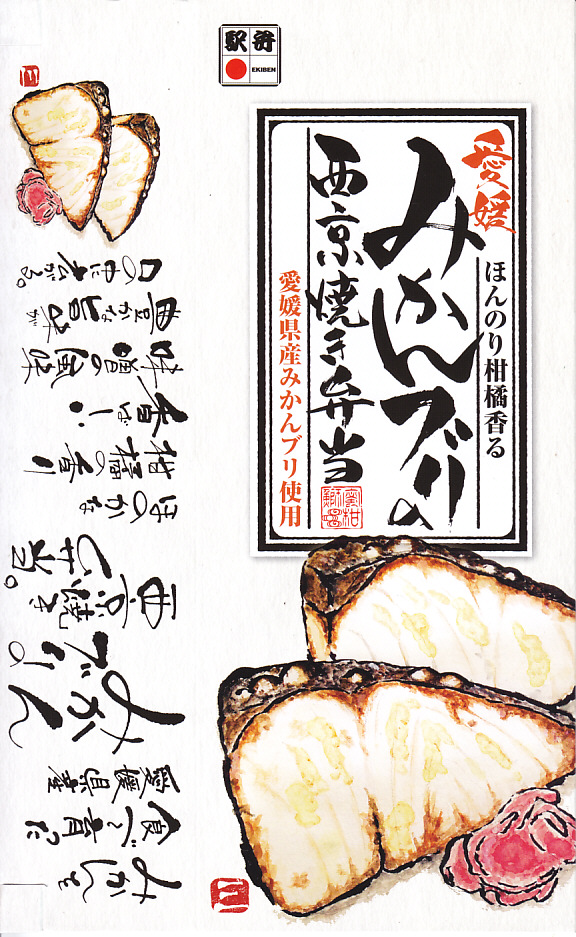 駅弁
EKIBEN
愛媛
ほんのり柑橘香る
みかんブリの
西京焼き弁当
愛媛県産みかんブリ使用
みかんを
食べて育った
愛媛県産
みかん
ブリの
西京焼き
弁当。
ほのかな
柑橘の香り
香ばしい
味噌の風味
豊かな旨味が
口の中に広がる。